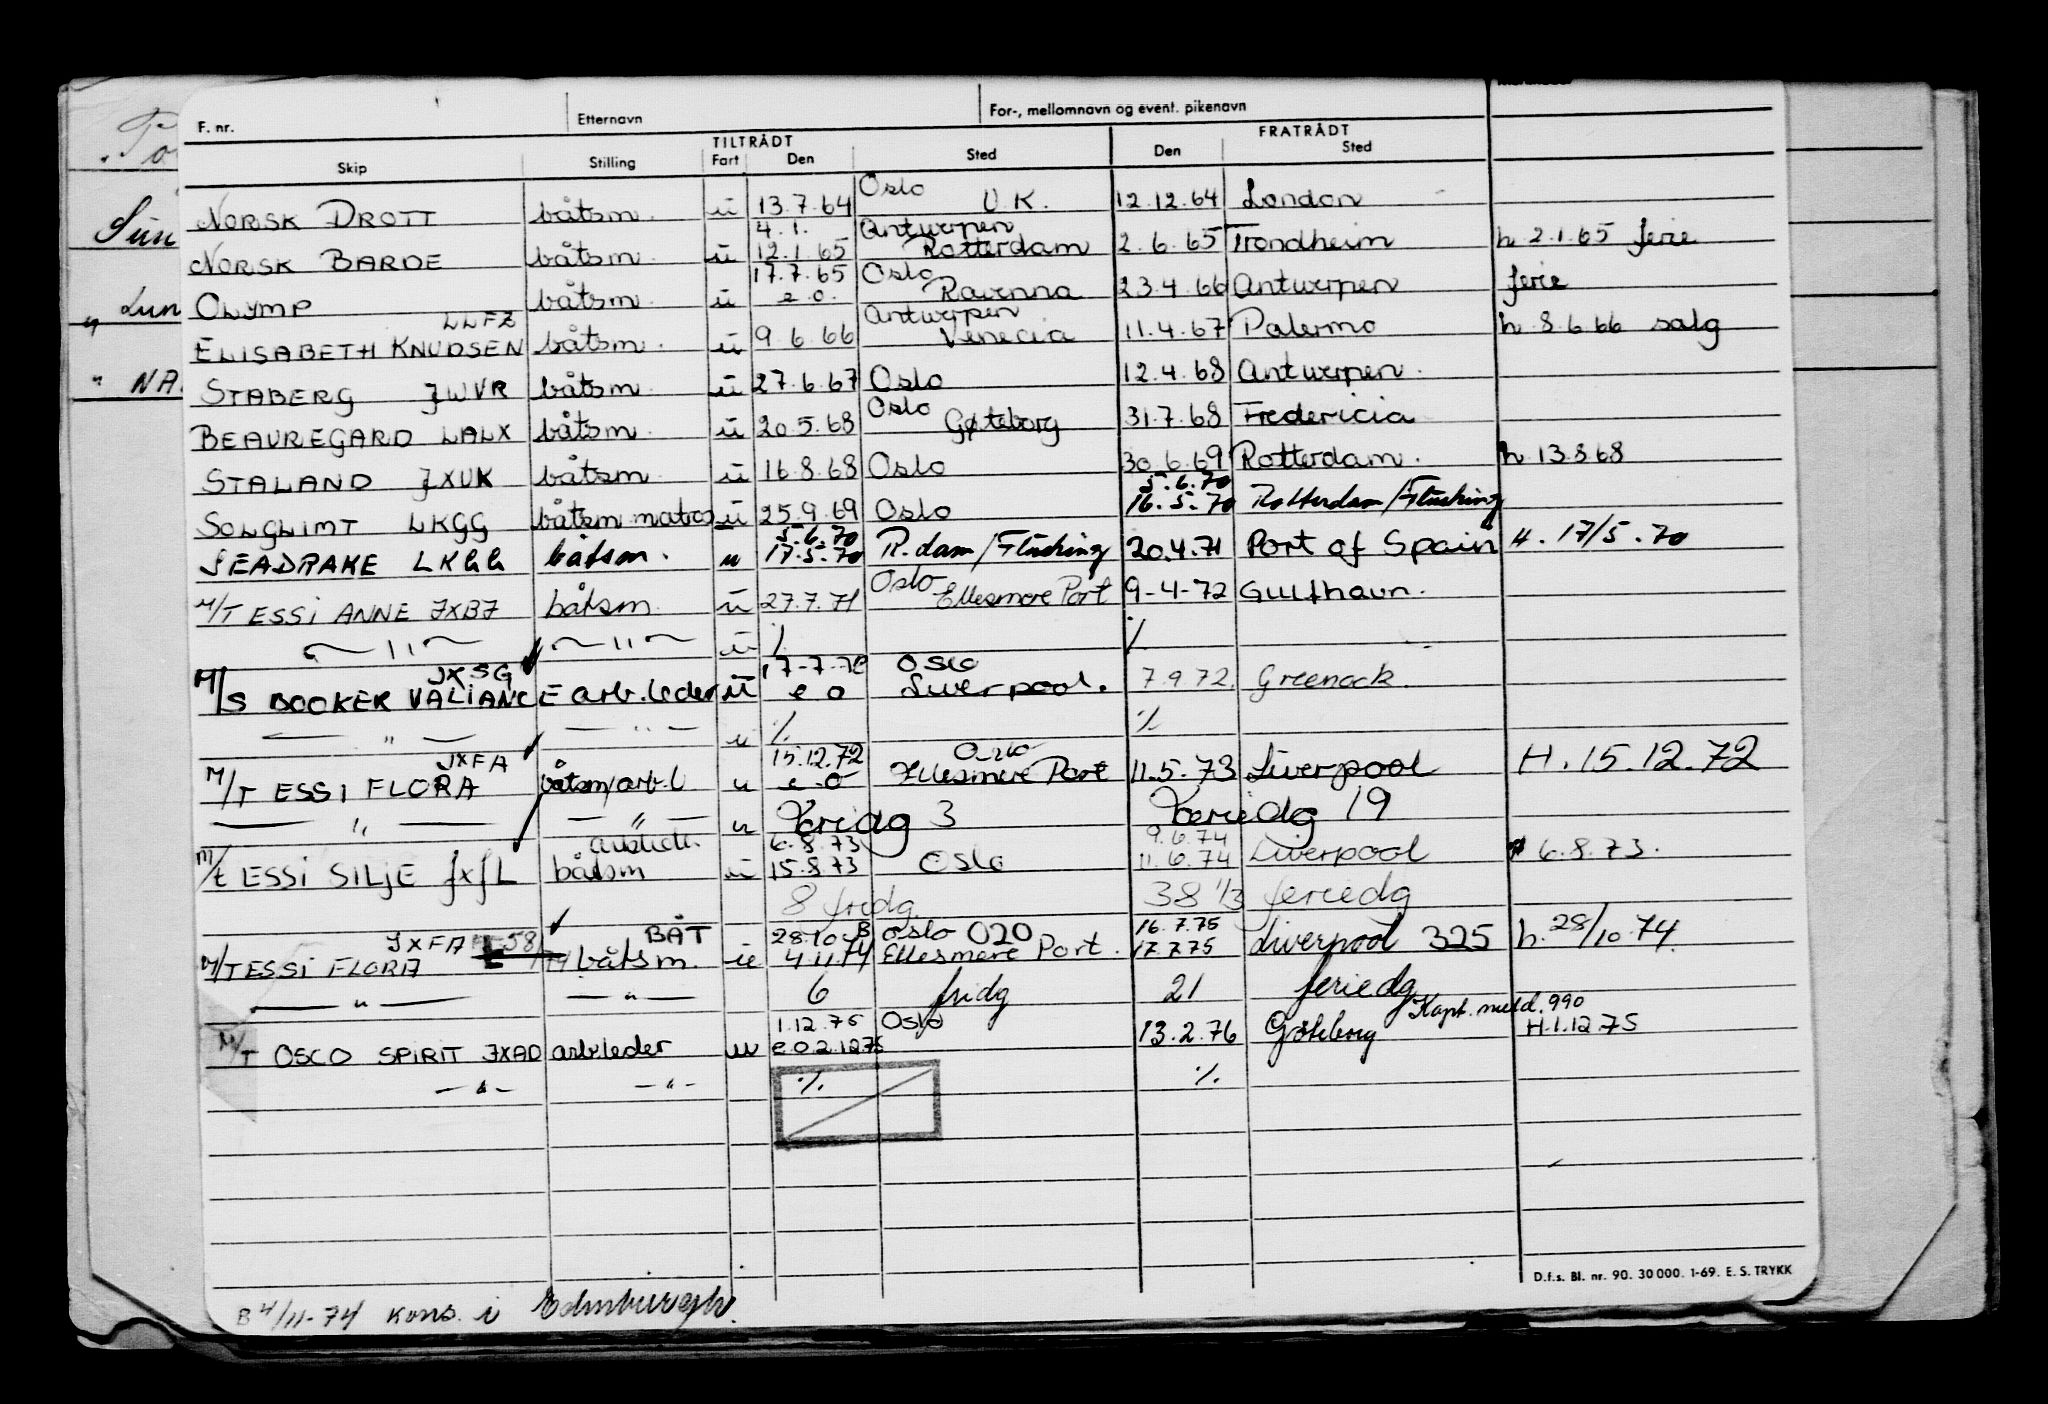 F. nr. Etternavn For-, mellomnavn og event. pikenavn
TILTRÅDT FRATRÅDT
Skip Stilling Fart Den Sted Den Sted
NORSK DROTT båtsm. u 13.7.64 Oslo U.K. 12.12.64 London
4.1. Antwerpen
NORSK BARDE båtsm. u 12.1.65 Rotterdam 2.6.65 Trondheim h 2.1.65 ferie
17.7.65 Oslo
OLYMP båtsm. u e.o. Ravenna 23.4.66 Antwerpen ferie
LLFZ Antwerpen
ELISABETH KNUDSEN båtsm. u 9.6.66 Venecia 11.4.67 Palermo h 8.6.66 salg
STABERG JWVR båtsm. u 27.6.67 Oslo 12.4.68 Antwerpen.
BEAUREGARD LALX båtsm. u 20.5.68 Oslo Gøteborg 31.7.68 Fredericia
STALAND JXUK båtsm. u 16.8.68 Oslo 30.6.69 Rotterdam. h 13.8.68
5.6.70
SOLGLIMT LKGG båtsm matros u 25.9.69 Oslo 16.5.70 Rotterdam/Flushing
5.6.70
SEADRAKE LKGG båtsm. u 17.5.70 R.dam/Flushing 20.4.71 Port of Spain H. 17/5.70
M/T ESSI ANNE JXBJ båtsm. u 27.7.71 Oslo Ellesmere Port 9-4-72 Gulfhavn.
— " — — " — u % %
JXSG 17-7-72 OSLO
M/S BOOKER VALIANCE arb.leder u e o Liverpool. 7.9.72. Greenock.
— " — — " — u % %
JXFA 15.12.72 Oslo
M/T ESSI FLORA båtsm/arb.l u e o Ellesmere Port 11.5.73 Liverpool H.15.12.72
— " — — " — u Fridg 3 Feriedg 19
arbled. 6.8.73 9.6.74
M/t ESSI SILJE JXJL båtsm u 15.8.73 Oslo 11.6.74 Liverpool 6.8.73.
8 fridg. 38 1/3 feriedg
JXFA BÅT 28.10 B Oslo 020 16.7.75
M/T ESSI FLORA båtsm. u 4.11.74 Ellesmere Port. 17.7.75 Liverpool 325 h. 28/10.74.
— " — — " — 6 fridg 21 feriedg
1.12.75 Oslo Kapt. meld. 990
M/T OSCO SPIRIT JXAD arb.leder u e.o 2.12.75 13.2.76 Göteborg H.1.12.75
— " — — " — % %
D.f.s. Bl. nr. 90. 30 000. 1-69. E. S. TRYKK
B 4/11-74 kons. i Edinburgh.